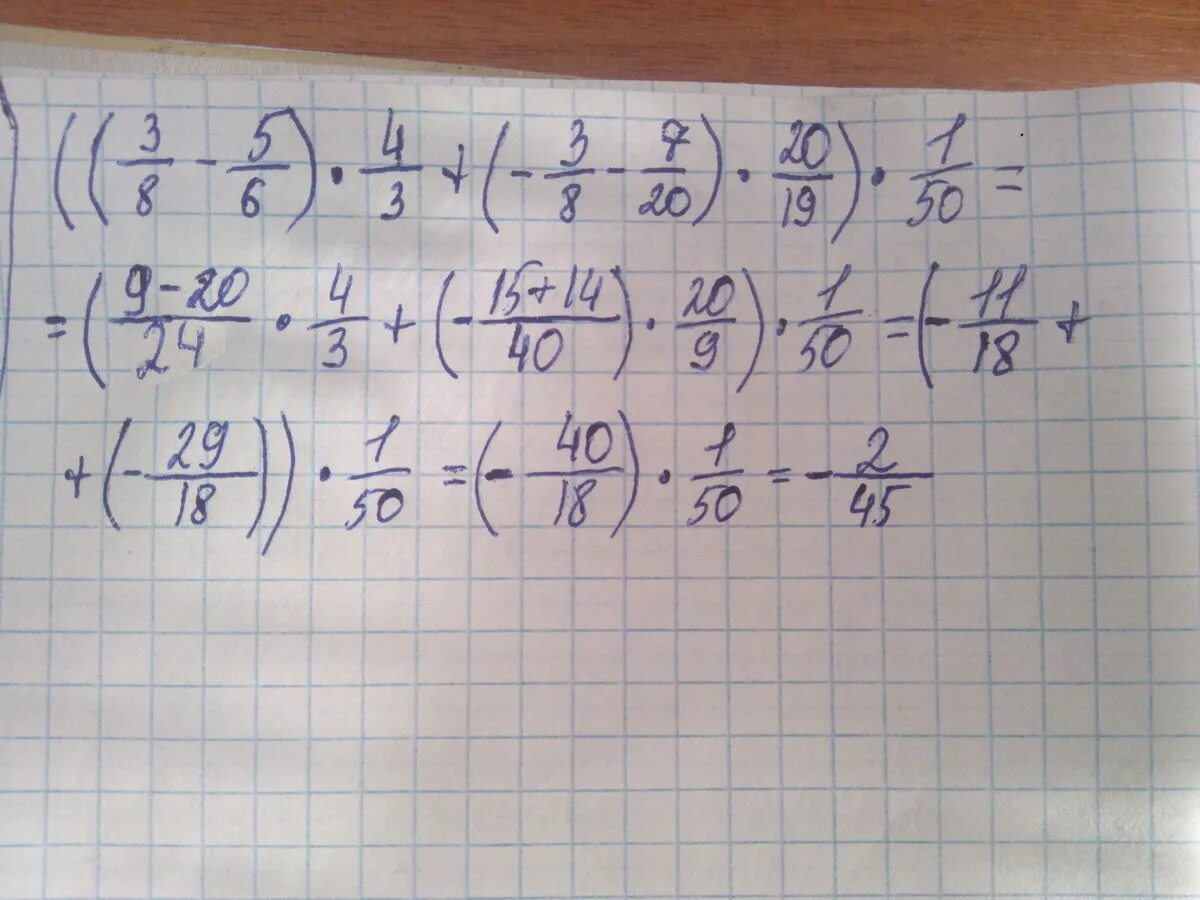 ((3/8 - 5/6) · 4/3 + (- 3/8 - 7/20) · 20/19) · 1/50 =
= ((9-20)/24 · 4/3 + (- (15+14)/40) · 20/9) · 1/50 = (- 11/18 +
+ (- 29/18)) · 1/50 = (- 40/18) · 1/50 = - 2/45